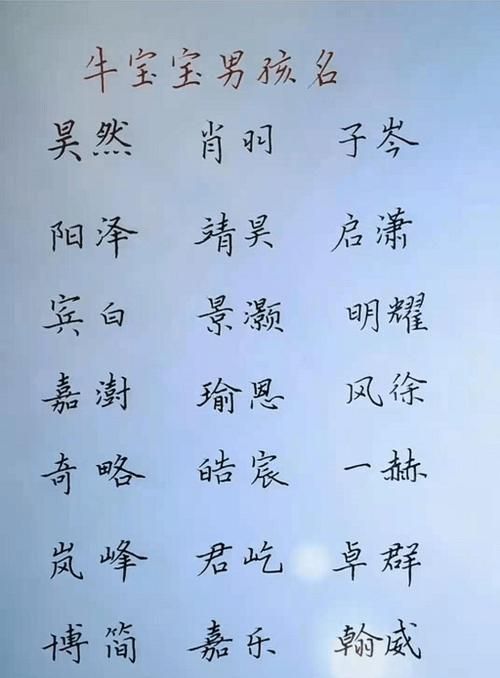 牛宝宝男孩名
昊然 肖羽 子岑
阳泽 靖昊 启潇
宾白 景灏 明耀
嘉澍 瑜恩 风徐
奇略 皓宸 一赫
岚峰 君屹 卓群
博简 嘉乐 翰威